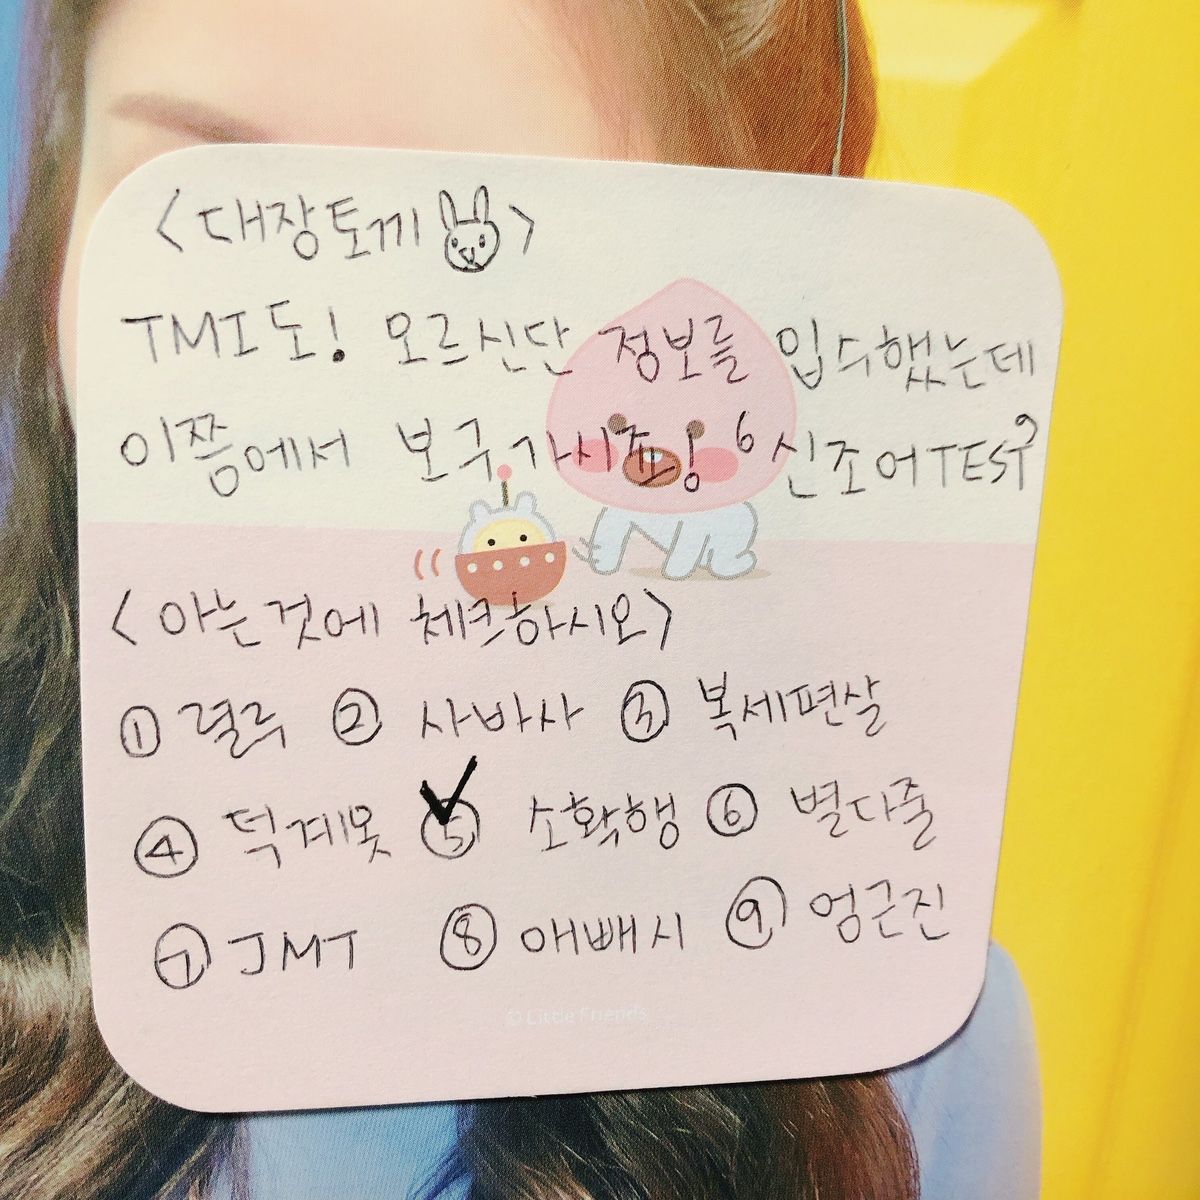 <대장토끼>
TMI도! 모르신단 정보를 입수했는데
이쯤에서 보구가시죠! '신조어TEST'
<아는것에 체크하시오>
① 렬루 ② 사바사 ③ 복세편살
④ 덕계못 ⑤ 소확행 ⑥ 별다줄
⑦ JMT ⑧ 애빼시 ⑨ 엄근진
© Little Friends